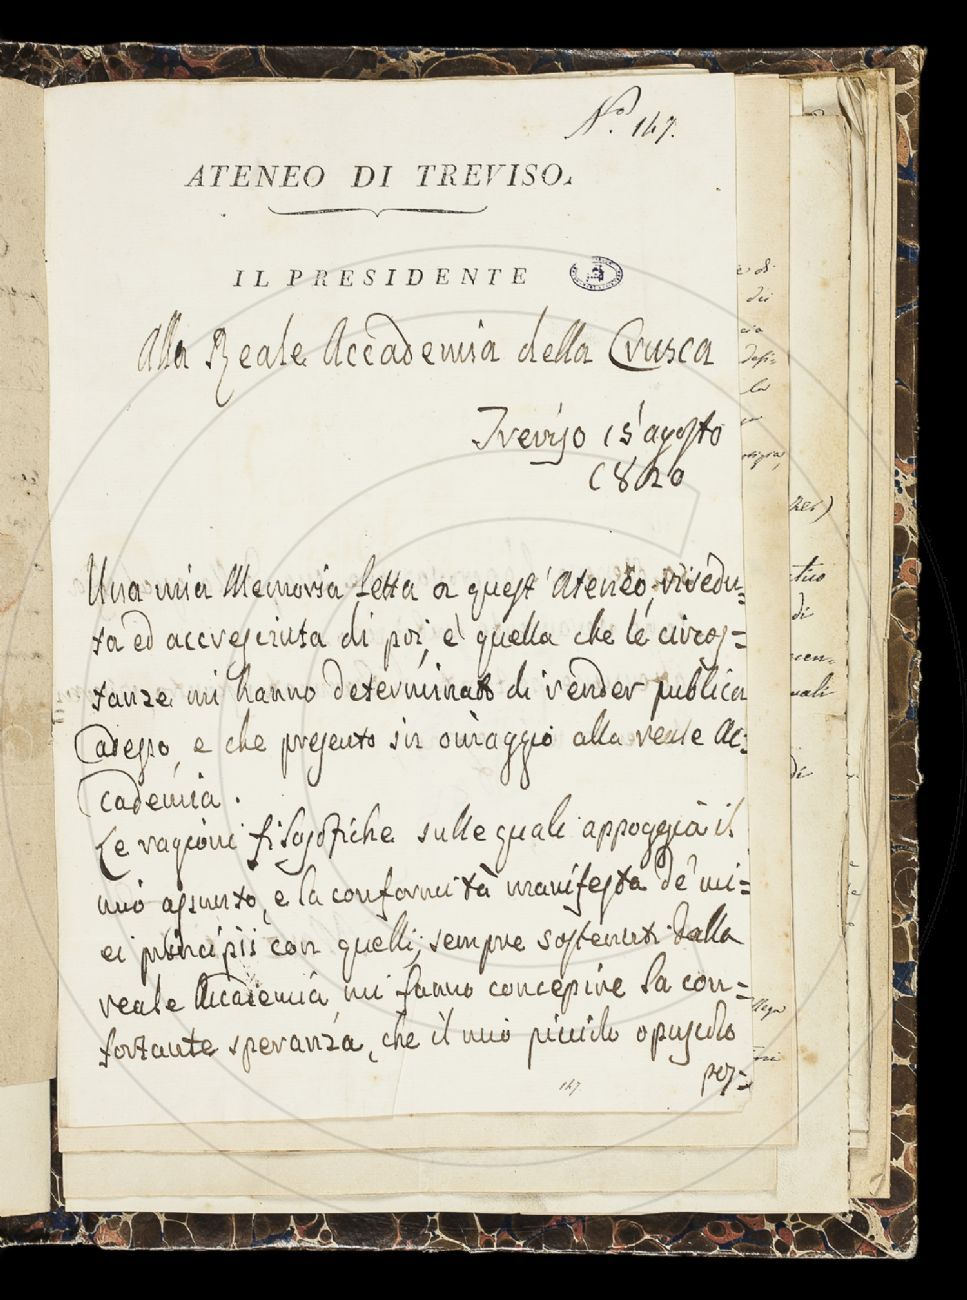 N.º 147.
ATENEO DI TREVISO.
IL PRESIDENTE
Alla Reale Accademia della Crusca
Treviso 15 agosto
1820
Una mia Memoria letta a quest' Ateneo, rivedu=
ta ed accresciuta di poi, è quella che le circos=
tanze mi hanno determinato di render pubblica
adesso, e che presento in omaggio alla reale Ac=
cademia.
Le ragioni filosofiche sulle quali appoggia il
mio assunto, e la conformità manifesta de' mi=
ei principii con quelli, sempre sostenuti dalla
reale Accademia mi fanno concepire la con=
fortante speranza, che il mio piccolo opuscolo
pos=
147